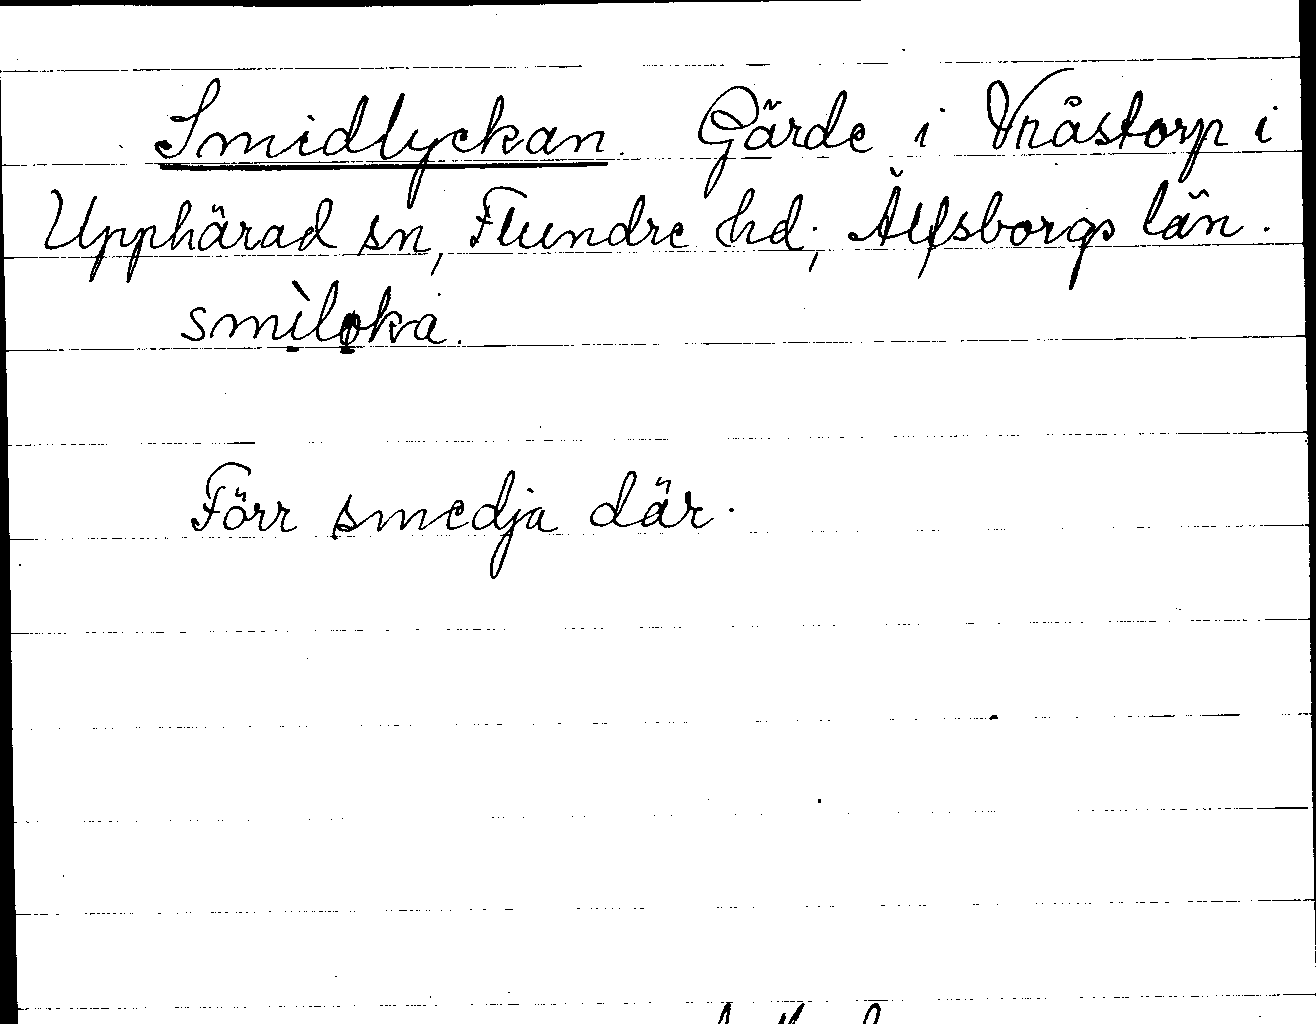 Smidlyckan. Gärde i Vråstorp i
Upphärad sn, Flundre hd; Älfsborgs län.
smìlo̤ka.
Förr smedja där.